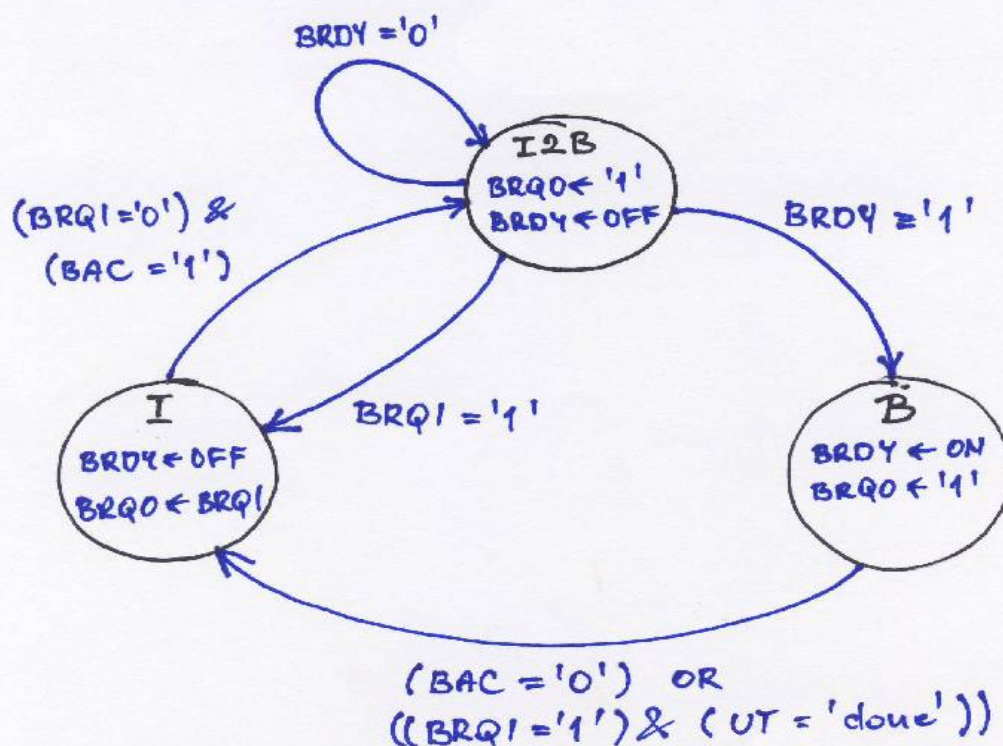 BRDY = '0'
I2B
BRQO ← '1'
BRDY ← OFF
(BRQI = '0') &
(BAC = '1')
BRDY = '1'
I
BRDY ← OFF
BRQO ← BRQI
BRQI = '1'
B
BRDY ← ON
BRQO ← '1'
(BAC = '0') OR
((BRQI = '1') & (UT = 'done'))